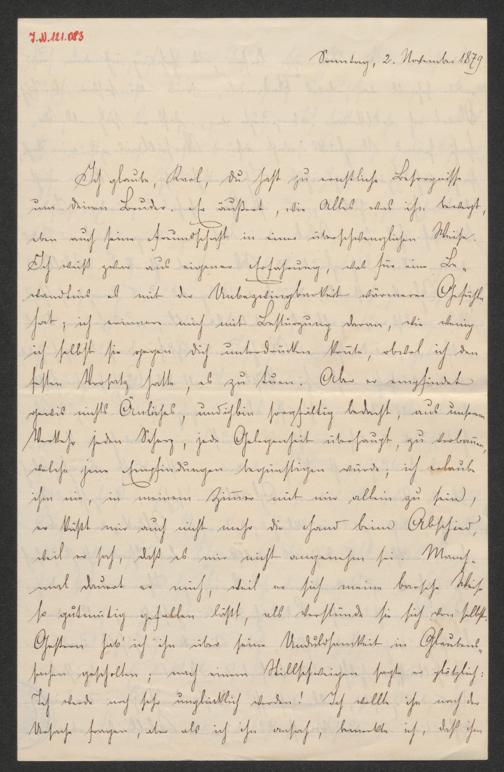 J.N. 121.083
Sonntag, 2. November 1879
Ich glaube, Karl, Du hast zu ernstliche Besorgnisse
um Deinen Bruder. Er äußert, wie Alles was ihn bewegt,
eben auch seine Freundschaft in einer überschwenglichen Weise.
Ich weiß zwar aus eigener Erfahrung, was für eine Be-
wandtnis es mit der Unbezwingbarkeit wärmerer Gefühle
hat; ich erinnere mich mit Bestürzung daran, wie wenig
ich selbst sie gegen Dich unterdrücken konnte, obwol ich den
festen Vorsatz hatte, es zu tun. Aber er empfindet
gewis nichts Änliches, und ich bin sorgfältig bedacht aus unserem
Verkehr jeden Scherz, jede Gelegenheit überhaupt, zu verbannen,
welche jene Empfindungen begünstigen würde; ich erlaube
ihm nie, in meinem Zimmer mit mir allein zu sein,
er küßt mir auch nicht mehr die Hand beim Abschied,
weil er sah, daß es mir nicht angenehm sei. Manch-
mal dauert er mich, weil er sich meine barsche Weise
so gutmütig gefallen läßt, als verstünde sie sich von selbst.
Gestern hab' ich ihn über seine Unduldsamkeit in Glaubens-
sachen gescholten; nach einem Stillschweigen sagte er plötzlich:
Ich werde noch sehr unglücklich werden! Ich wollte ihn nach der
Ursache fragen; aber als ich ihn ansah, bemerkte ich, daß ihm